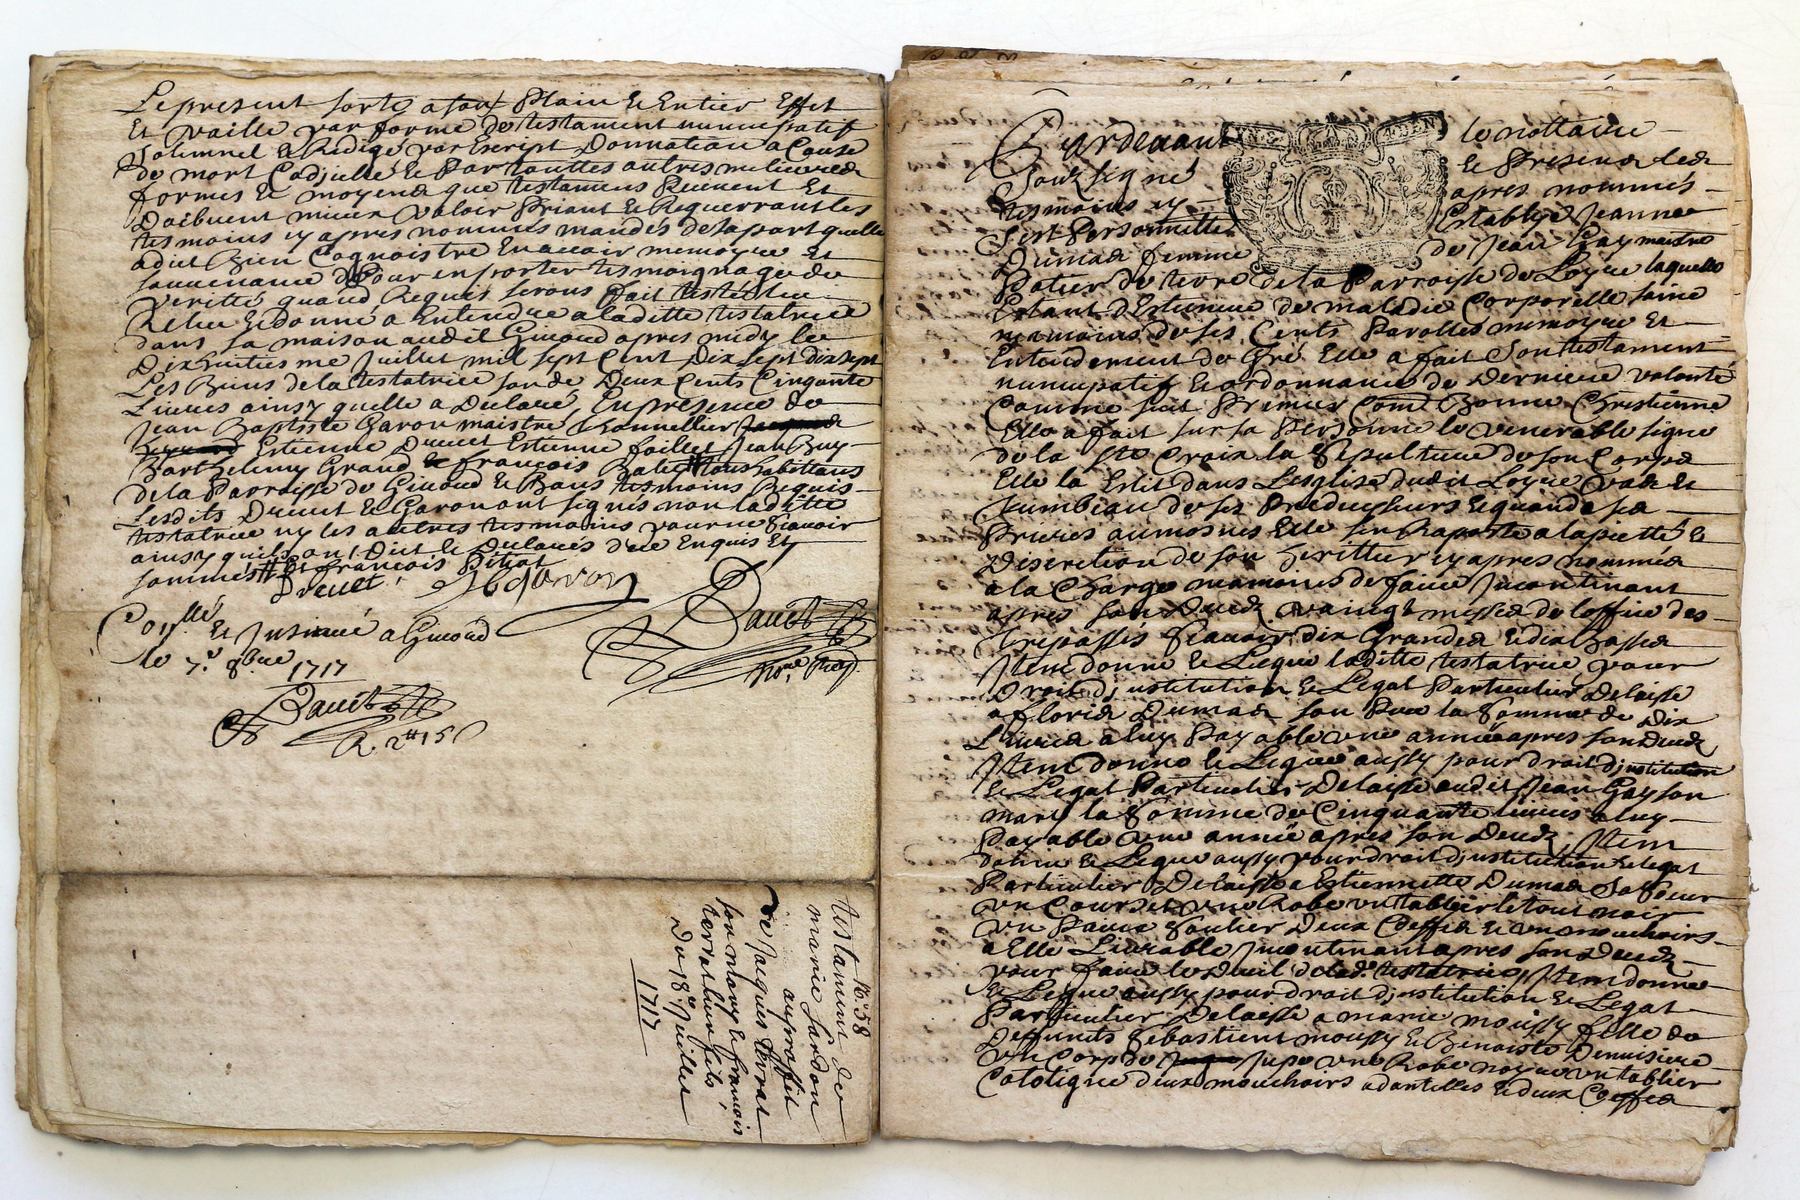 Le present sorte a son Plain & Entier Effet
Et vaille par forme de testament nuncupatif
Solemnel & Redigé par Escript Donnation a Cause
de mort Codicille & Par touttes autres meilleures
formes & moyens que testaments Peuvent Et
Doibvent mieux Valoir Priant & Requerrant les
tesmoins cy apres nommés mandés de sa part quelle
a dict Bien Cognoistre En avoir memoyre Et
souvenance Pour en porter tesmoignage de
verité quand Requis serons fait
Releu & donné a Entendre a laditte testatrice
dans sa maison audit Giuord apres midy le
Dixhuitiesme Juillet mil sept Cent Dix sept
Les Biens de la testatrice sont de Deux Cents Cinquante
Livres ainsy quelle a Declaré En presence de
Jean Baptiste Garon maistre Thonnellier
Estienne Drevet Estienne faillet Jean Buy
Barthelemy Grand & francois tous habittans
de la Parroisse de Giuord & Bans tesmoins Requis
Lesdits Drevet & Garon ont signés non laditte
testatrice ny les autres tesmoins pour ne scavoir
ainsy quils ont Dict & Declarés de ce Enquis Et
sommés # Et francois
Drevet JB Garon
Bauit
No.re Roy.
Con.llé Et Insinué a Giuord
le 7.e 8bre 1717
Bauit
R. 2tt 15 s
B. 58
testament de
marie Jardon
au proffit
de Jacques terrat
son mary & francois
leur fils,
Du 18.e Juillet
1717
Pardevant le nottaire
Soubsigné & Presens les
tesmoins cy apres nommés
S'est Personnelle Establye Jeanne
Dumas femme de Jean Gay maistre
Potier de terre de la Parroisse de Loyre laquelle
Estant de maladie Corporelle saine
neanmoins de ses Cents Parolles memoyre Et
Entendement de Gré Elle a fait Son testament
nuncupatif & ordonnance de Derniere volonté
Comme suit Premier Com.e Bonne Chrestienne
Elle a fait sur sa Personne le venerable signe
de la S.te Croix la Sepulture de son Corps
Elle la Eslit dans Lesglise dudit Loyre vas &
tumbeau de ses Preducesseurs & quand a ses
Prieres aumosnes Elle s'en Raporte a la pietté &
Discretion de son heritier cy apres nommé
a la Charge neamoins de faire Incontinant
apres son Decedz vaingt messes de loffice des
trepassés Scavoir dix Grandes & dix Basses
Item donne & Legue laditte testatrice pour
Droit d'institution & Legat Particulier Delaisse
a florid Dumas son Pere la Somme de Dix
Livres a luy Payable une année apres son Decedz
Item donne & Legue aussy pour droit d'institution
& Legat Particulier Delaisse audit Jean Gay son
mary la Somme de Cinquante livres a luy
Payable une année apres son Decedz, Item
donne & Legue aussy pour droit d'institution & legat
Particulier Delaisse a Estiennette Dumas Sa Soeur
un Courset une Robe un tablier le tout noir
un Paire Soulier Deux Coeffes & mouchoirs
a Elle Livrable Incontinant apres son Decedz
pour faire le dueil de lad. testatrice, Item donne
& Legue aussy pour droit d'institution & Legat
Particulier Delaisse a marie moussy fille de
Deffunts Sebastient moussy & Benoiste
un Corps de Jupe une Robe noyre un tablier
Cotoligne deux mouchoirs a dantelles & deux Coeffes